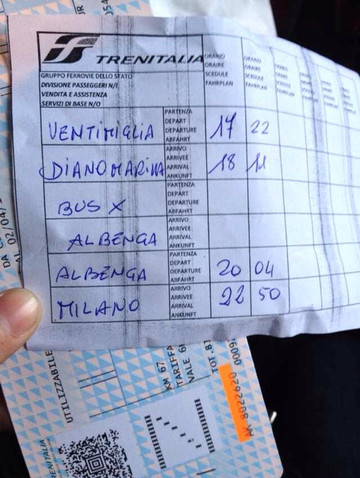 TRENITALIA
GRUPPO FERROVIE DELLO STATO
DIVISIONE PASSEGGERI N/I
VENDITA E ASSISTENZA
SERVIZI DI BASE N/O
ORARIO ORARIO
ORAIRE ORAIRE
SCEDULE SCEDULE
FAHRPLAN FAHRPLAN
VENTIMIGLIA
PARTENZA
DEPART
DEPARTURE
ABFAHRT
17 22
DIANO MARINA
ARRIVO
ARRIVEE
ARRIVAL
ANKUNFT
18 11
BUS X
PARTENZA
DEPART
DEPARTURE
ABFAHRT
ALBENGA
ARRIVO
ARRIVEE
ARRIVAL
ANKUNFT
ALBENGA
PARTENZA
DEPART
DEPARTURE
ABFAHRT
20 04
MILANO
ARRIVO
ARRIVEE
ARRIVAL
ANKUNFT
22 50
UTILIZZABILE
KM 67
TARIFFA